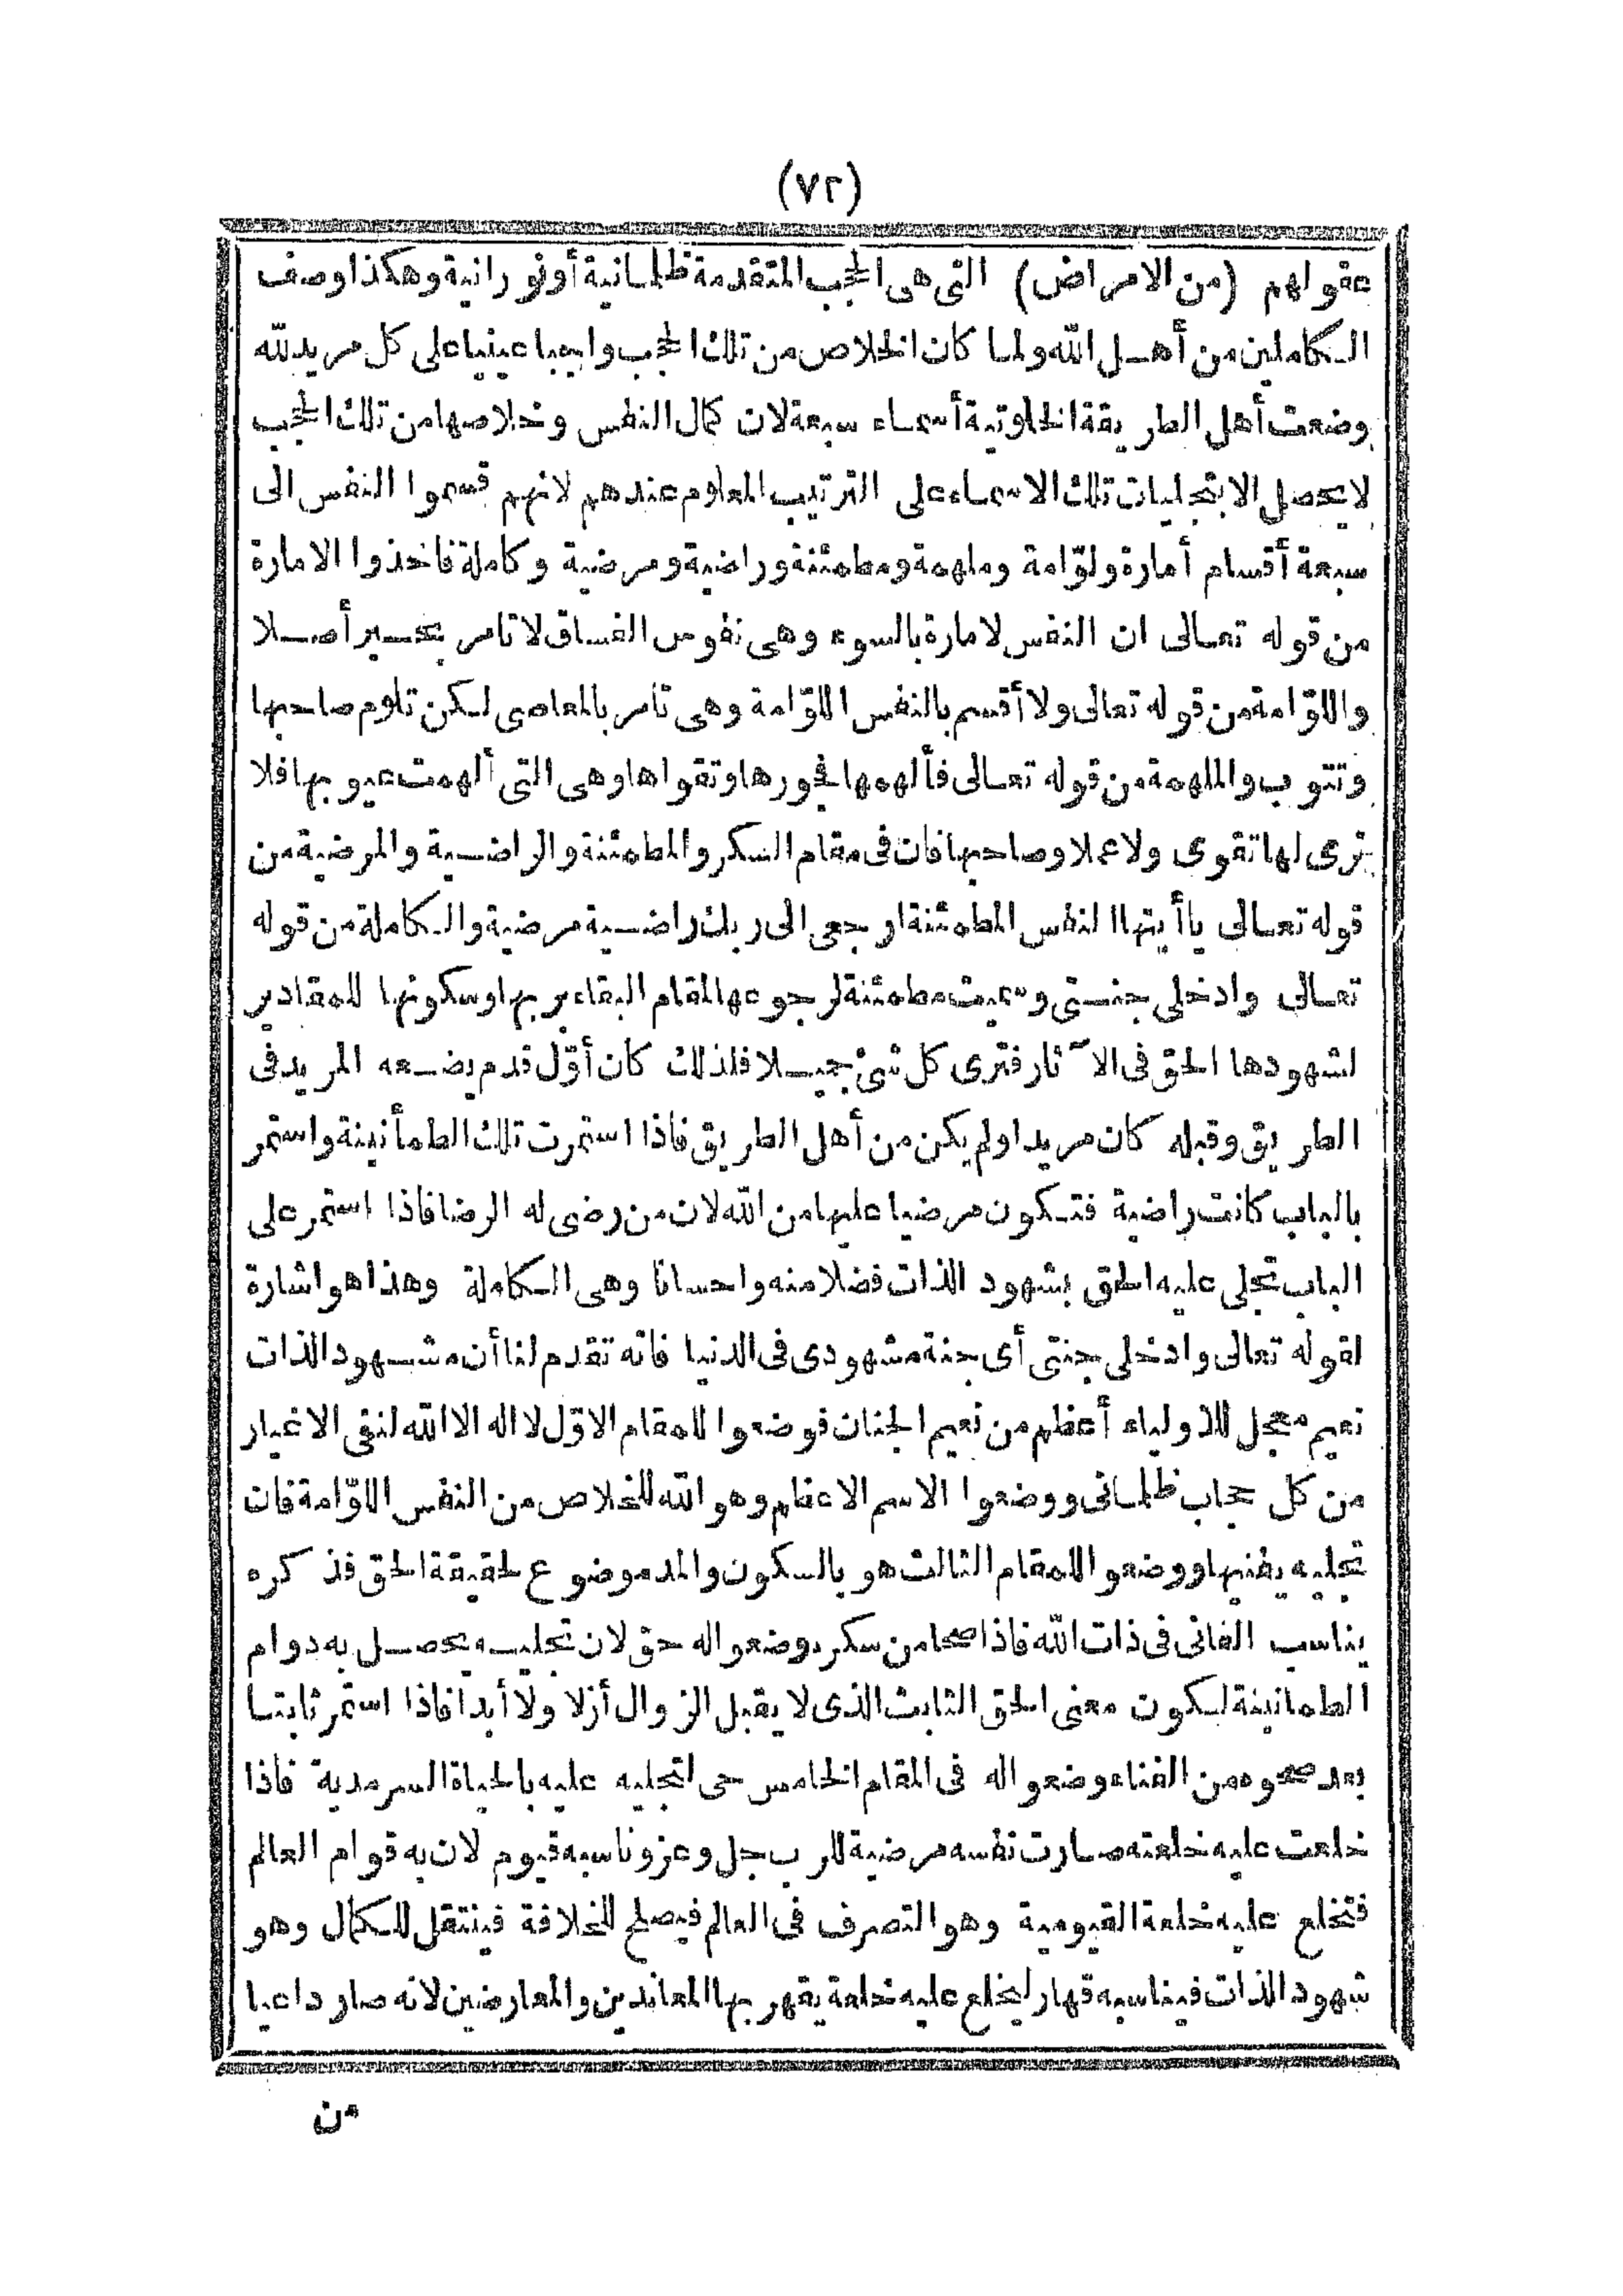 (٧٢)
عقولهم (من الامراض) التى هى الحجب المتقدمة ظلمانية أونورانية وهكذا وصف
الكاملين من أهل الله ولما كان الخلاص من تلك الحجب واجبا عينيا على كل مريد لله
وضعت أهل الطريقة الخلوتية أسماء سبعة لان كمال النفس وخلاصها من تلك الحجب
لا يحصل الا بتجليات تلك الاسماء على الترتيب المعلوم عندهم لانهم قسموا النفس الى
سبعة أقسام أمارة ولوّامة وملهمة ومطمئنة وراضية ومرضية وكاملة فاخذوا الامارة
من قوله تعالى ان النفس لامارة بالسوء وهى نفوس الفساق لا تامر بخير أصلا
واللوّامة من قوله تعالى ولا أقسم بالنفس اللوّامة وهى تأمر بالمعاصى لكن تلوم صاحبها
وتتوب والملهمة من قوله تعالى فألهمها فجورها وتقواها وهى التى ألهمت عيوبها فلا
ترى لها تقوى ولا عملا وصاحبها فان فى مقام السكر والمطمئنة والراضية والمرضية من
قوله تعالى ياأيتها النفس المطمئنة ارجعى الى ربك راضية مرضية والكاملة من قوله
تعالى وادخلى جنتى وسميت مطمئنة لرجوعها لمقام البقاء بربها وسكونها للمقادير
لشهودها الحق فى الآثار فترى كل شئ جميلا فلذلك كان أوّل قدم يضعه المريد فى
الطريق وقبله كان مريدا ولم يكن من أهل الطريق فاذا استمرت تلك الطمأنينة واستمر
بالباب كانت راضية فتكون مرضيا عليها من الله لان من رضى له الرضا فاذا استمر على
الباب تجلى عليه الحق بشهود الذات فضلا منه واحسانا وهى الكاملة وهذا هو اشارة
لقوله تعالى وادخلى جنتى أى جنة مشهودى فى الدنيا فانه تقدم لنا أن مشهود الذات
نعيم معجل للاولياء أعظم من نعيم الجنان فوضعوا للمقام الاوّل لا اله الا الله لنفى الاغيار
من كل حجاب ظلمانى ووضعوا الاسم الاعظم وهو الله للخلاص من النفس اللوّامة فان
تجليه يفنيها ووضعوا للمقام الثالث هو بالسكون والمد موضوع لحقيقة الحق فذكره
يناسب الفانى فى ذات الله فاذا صحا من سكره وضعوا له حق لان تجليه يحصل به دوام
الطمانينة ليكون معنى الحق الثابت الذى لا يقبل الزوال أزلا ولا أبدا فاذا استمر ثابتا
بعد صحوه من الفناء وضعوا له فى المقام الخامس حى لتجليه عليه بالحياة السرمدية فاذا
خلعت عليه خلعته صارت نفسه مرضية للرب جل وعز وناسبه قيوم لان به قوام العالم
فتخلع عليه خلعة القيومية وهو التصرف فى العالم فيصلح للخلافة فينتقل للكمال وهو
شهود الذات فيناسبه قهار ليخلع عليه خلعة يقهر بها المعاندين والمعارضين لانه صار داعيا
من